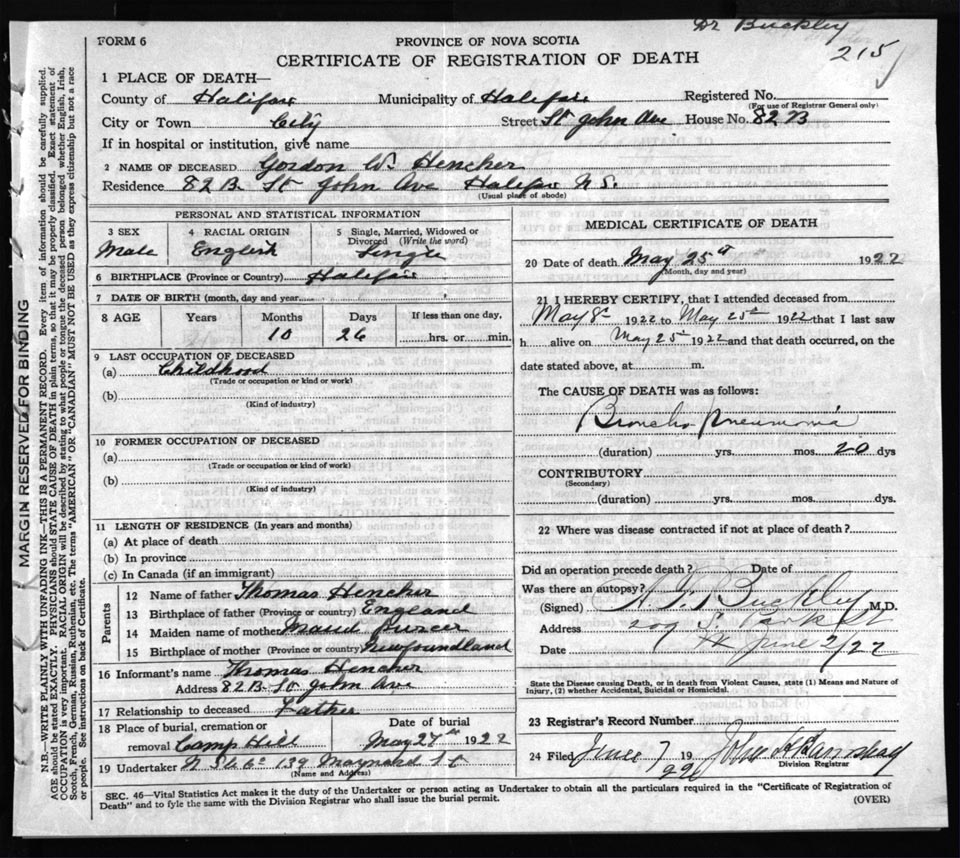 Dr Buckley
215
FORM 6
PROVINCE OF NOVA SCOTIA
CERTIFICATE OF REGISTRATION OF DEATH
1 PLACE OF DEATH—
County of Halifax Municipality of Halifax Registered No.
(For use of Registrar General only)
City or Town City Street St John Ave House No. 82 B
If in hospital or institution, give name
2 NAME OF DECEASED Gordon W. Hencher
Residence 82 B. St John Ave Halifax N.S.
(Usual place of abode)
PERSONAL AND STATISTICAL INFORMATION
3 SEX 4 RACIAL ORIGIN 5 Single, Married, Widowed or Divorced (Write the word)
Male English Single
6 BIRTHPLACE (Province or Country) Halifax
7 DATE OF BIRTH (month, day and year)
8 AGE Years Months Days If less than one day,
10 26 hrs. or min.
9 LAST OCCUPATION OF DECEASED
(a) Childhood
(Trade or occupation or kind or work)
(b)
(Kind of industry)
10 FORMER OCCUPATION OF DECEASED
(a)
(Trade or occupation or kind of work)
(b)
(Kind of industry)
11 LENGTH OF RESIDENCE (In years and months)
(a) At place of death
(b) In province
(c) In Canada (if an immigrant)
Parents
12 Name of father Thomas Hencher
13 Birthplace of father (Province or country) England
14 Maiden name of mother Maud
15 Birthplace of mother (Province or country) Newfoundland
16 Informant's name Thomas Hencher
Address 82 B St John Ave
17 Relationship to deceased Father
18 Place of burial, cremation or Date of burial
removal Camp Hill May 27th 1922
19 Undertaker 139 Maynard St
(Name and Address)
MEDICAL CERTIFICATE OF DEATH
20 Date of death May 25th 1922
(Month, day and year)
21 I HEREBY CERTIFY, that I attended deceased from
May 8th 1922 to May 25th 1922 that I last saw
h alive on May 25th 1922 and that death occurred, on the
date stated above, at m.
The CAUSE OF DEATH was as follows:
Broncho Pneumonia
(duration) yrs. mos. 20 dys
CONTRIBUTORY
(Secondary)
(duration) yrs. mos. dys.
22 Where was disease contracted if not at place of death?
Did an operation precede death? Date of
Was there an autopsy?
(Signed) Buckley M.D.
Address
Date June 2/22
State the Disease causing Death, or in death from Violent Causes, state (1) Means and Nature of
Injury, (2) whether Accidental, Suicidal or Homicidal.
23 Registrar's Record Number
24 Filed June 7 1922 John
Division Registrar
SEC. 46—Vital Statistics Act makes it the duty of the Undertaker or person acting as Undertaker to obtain all the particulars required in the "Certificate of Registration of
Death" and to fyle the same with the Division Registrar who shall issue the burial permit.
(OVER)
MARGIN RESERVED FOR BINDING
N.B.—WRITE PLAINLY WITH UNFADING INK—THIS IS A PERMANENT RECORD. Every item of information should be carefully supplied.
AGE should be stated EXACTLY. PHYSICIANS should STATE CAUSE OF DEATH in plain terms, so that it may be properly classified. Exact statement of
OCCUPATION is very important. RACIAL ORIGIN will be described by stating to what people or tongue the deceased person belonged whether English, Irish,
Scotch, French, German, Russian, Ruthenian, etc. The terms "AMERICAN" OR "CANADIAN" MUST NOT BE USED as they express citizenship but not a race
or people. See instructions on back of Certificate.